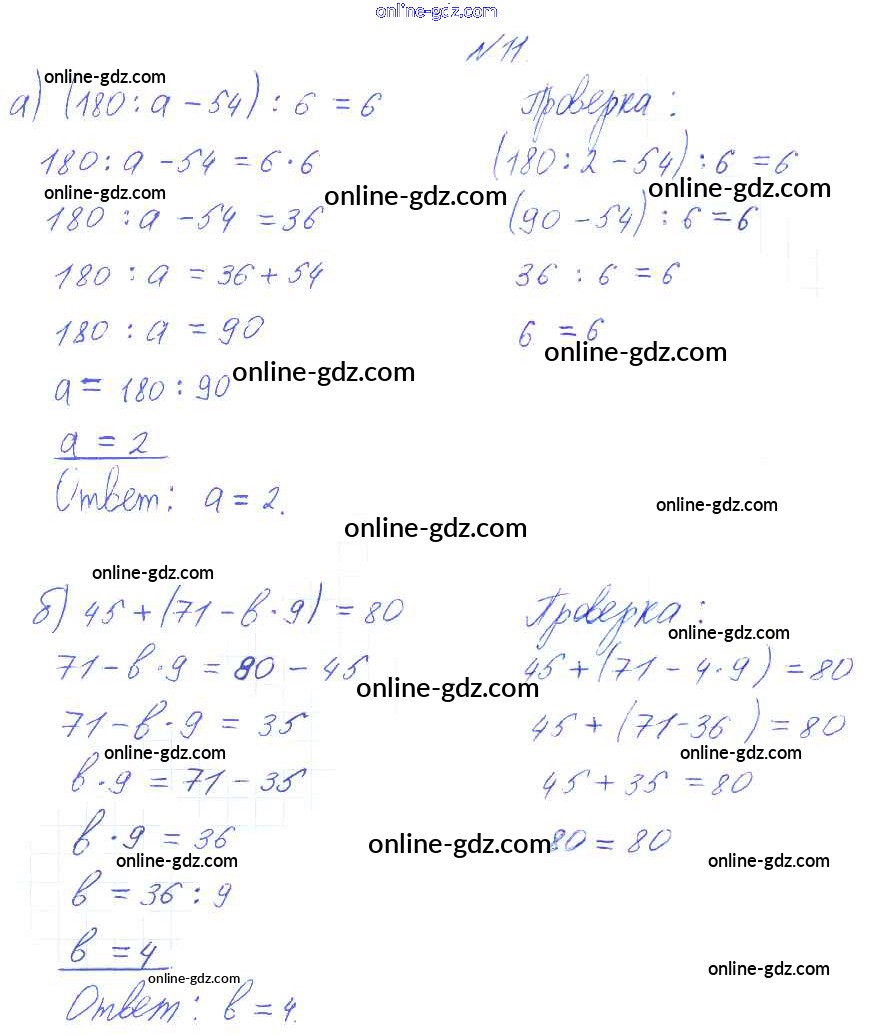 online-gdz.com
N 11.
online-gdz.com
а) (180 : а - 54) : 6 = 6
180 : а - 54 = 6 · 6
online-gdz.com
180 : а - 54 = 36
online-gdz.com
180 : а = 36 + 54
180 : а = 90
а = 180 : 90
online-gdz.com
а = 2
Ответ: а = 2.
Проверка:
(180 : 2 - 54) : 6 = 6
online-gdz.com
(90 - 54) : 6 = 6
36 : 6 = 6
6 = 6
online-gdz.com
online-gdz.com
online-gdz.com
online-gdz.com
б) 45 + (71 - в · 9) = 80
71 - в · 9 = 80 - 45
online-gdz.com
71 - в · 9 = 35
online-gdz.com
в · 9 = 71 - 35
в · 9 = 36
online-gdz.com
online-gdz.com
в = 36 : 9
в = 4
online-gdz.com
Ответ: в = 4.
Проверка:
online-gdz.com
45 + (71 - 4 · 9) = 80
45 + (71 - 36) = 80
online-gdz.com
45 + 35 = 80
80 = 80
online-gdz.com
online-gdz.com